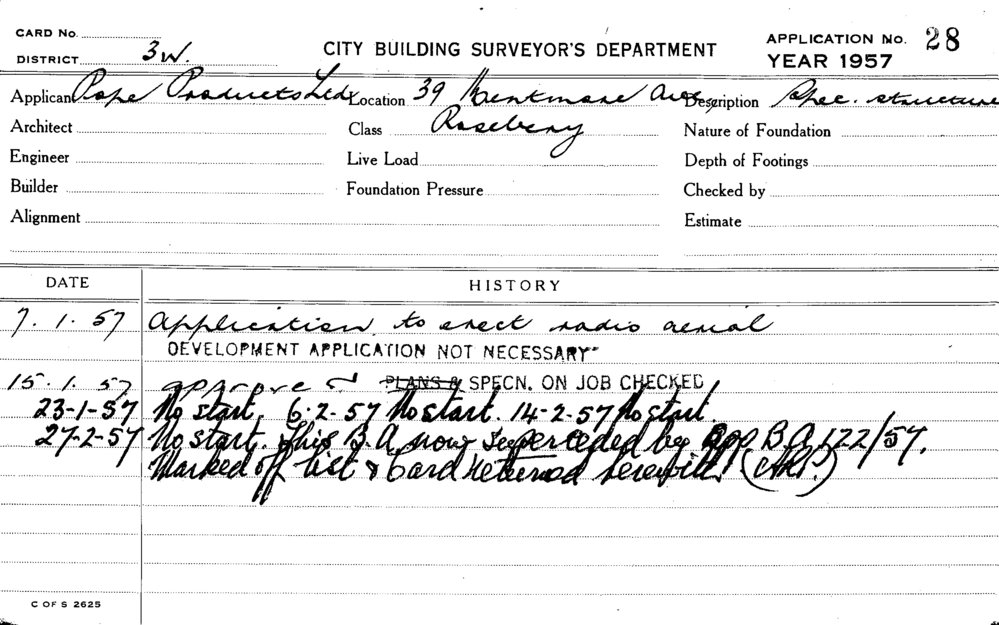 CARD No.
DISTRICT 3W.
CITY BUILDING SURVEYOR'S DEPARTMENT
APPLICATION No. 28
YEAR 1957
Applicant Pope Products Ltd Location 39 Kentmare Ave Description Spec. structure
Architect Class Rosebery Nature of Foundation
Engineer Live Load Depth of Footings
Builder Foundation Pressure Checked by
Alignment Estimate
DATE HISTORY
7. 1. 57 Application to erect radio aerial
DEVELOPMENT APPLICATION NOT NECESSARY
15. 1. 57 approved PLANS & SPECN. ON JOB CHECKED
23-1-57 No start. 6-2-57 No start. 14-2-57 No start.
27-2-57 No start. This B.A now superceded by app B.A 122/57.
Marked off list & Card returned herewith
C OF S 2625